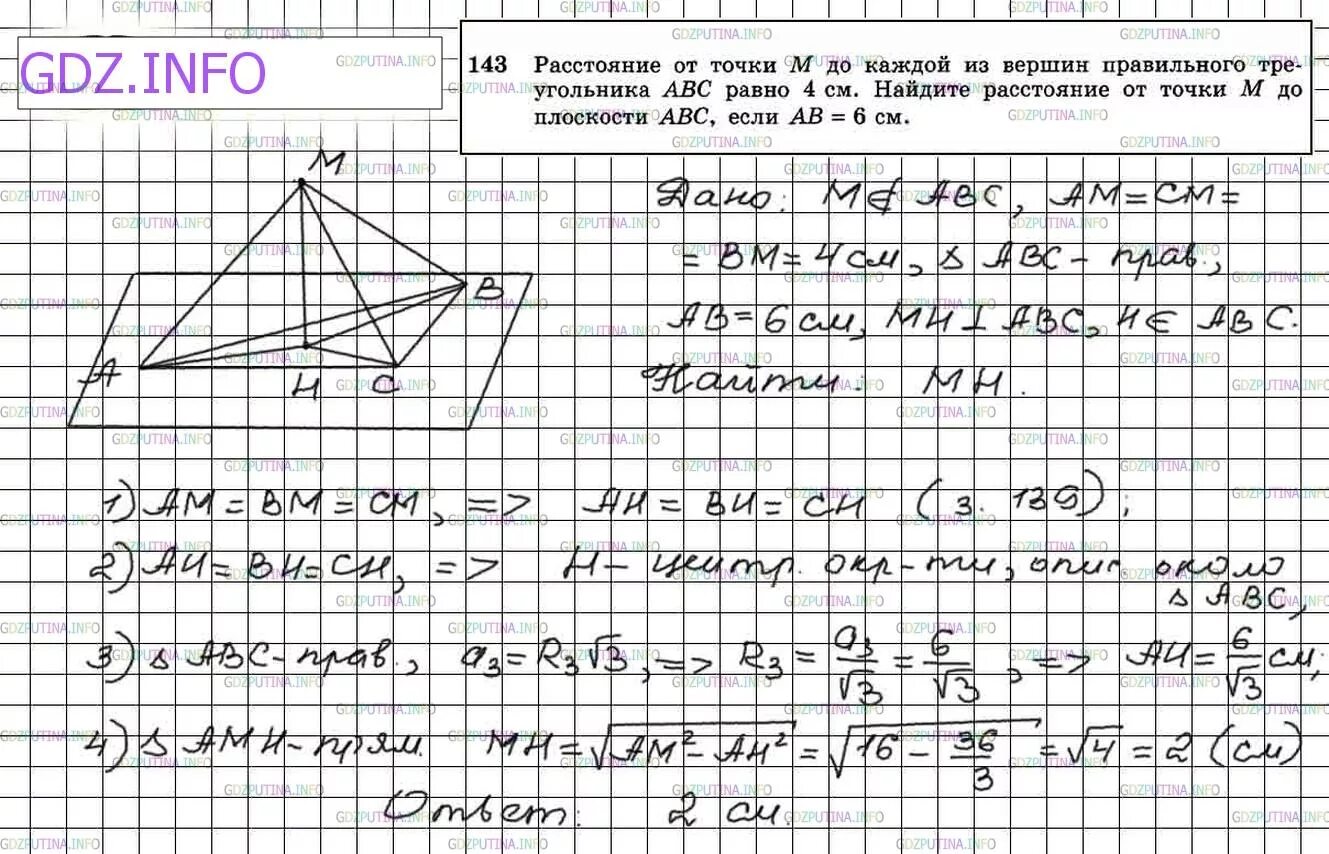 GDZ.INFO
143 Расстояние от точки M до каждой из вершин правильного тре-
угольника ABC равно 4 см. Найдите расстояние от точки M до
плоскости ABC, если AB = 6 см.
M
B
A
H
C
Дано: M∉ ABC, AM = CM =
= BM = 4 см, Δ ABC - прав.,
AB = 6 см, MH ⊥ ABC, H ∈ ABC.
Найти: MH.
1) AM = BM = CM, => AH = BH = CH (з. 139);
2) AH = BH = CH, => H - центр. окр-ти, опис. около
Δ ABC,
3) Δ ABC - прав., a₃ = R₃√3, => R₃ = a₃/√3 = 6/√3, => AH = 6/√3 см;
4) Δ AMH - прям. MH = √(AM² - AH²) = √(16 - 36/3) = √4 = 2 (см)
Ответ: 2 см.
GDZPUTINA.INFO